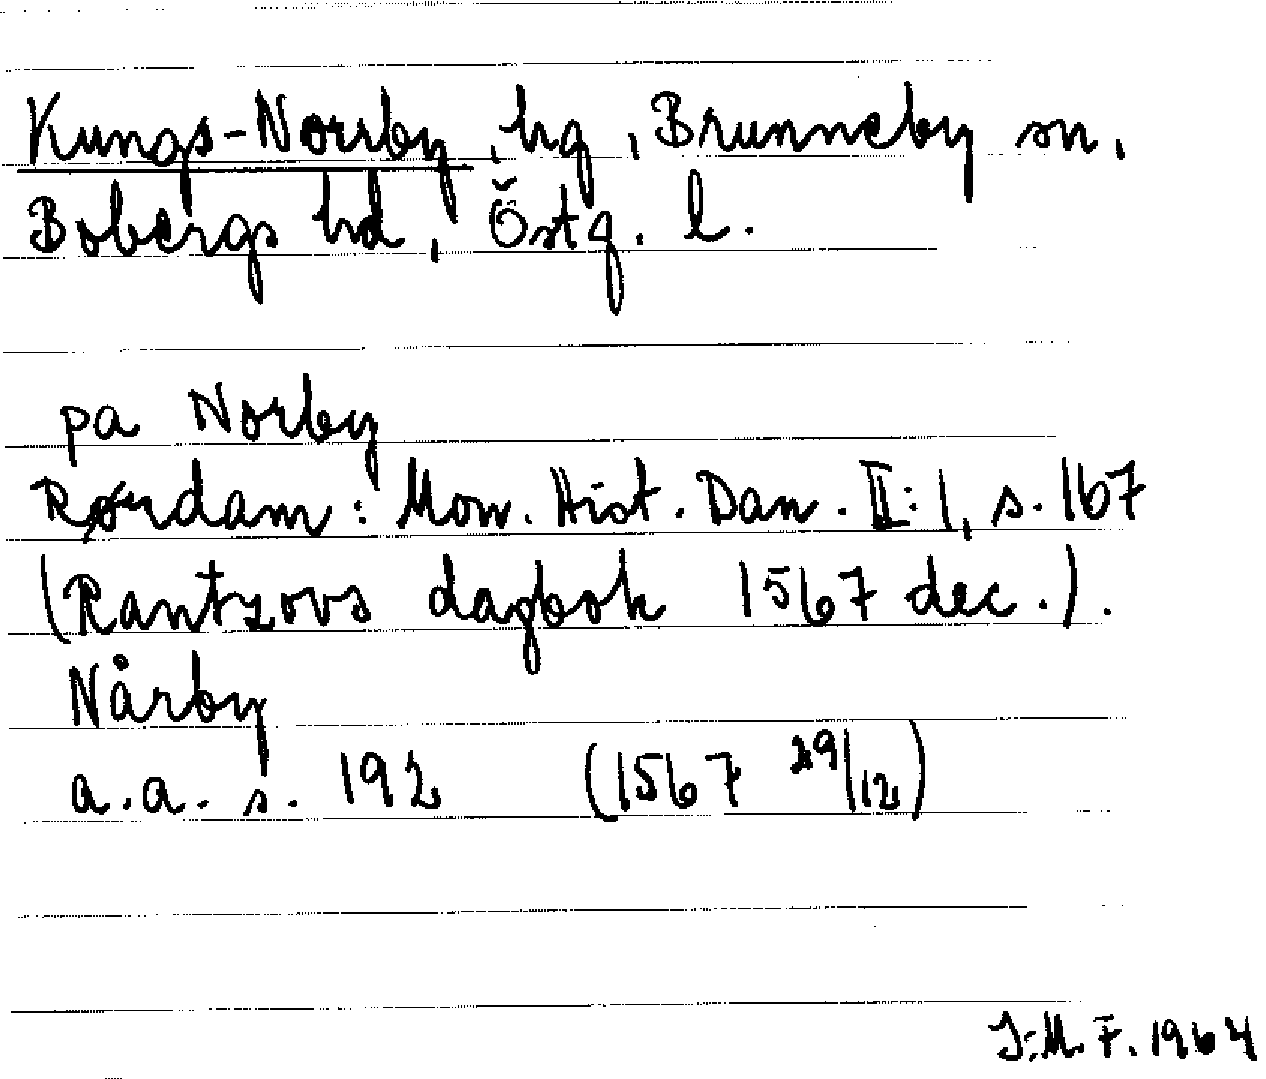 Kungs-Norrby, hg, Brunneby sn,
Bobergs hd, Östg. l.
pa Norby
Rørdam: Mon. Hist. Dan. II:1, s. 167
(Rantzovs dagbok 1567 dec.).
Nårby
a.a. s. 192 (1567 29/12)
J:M.F. 1964